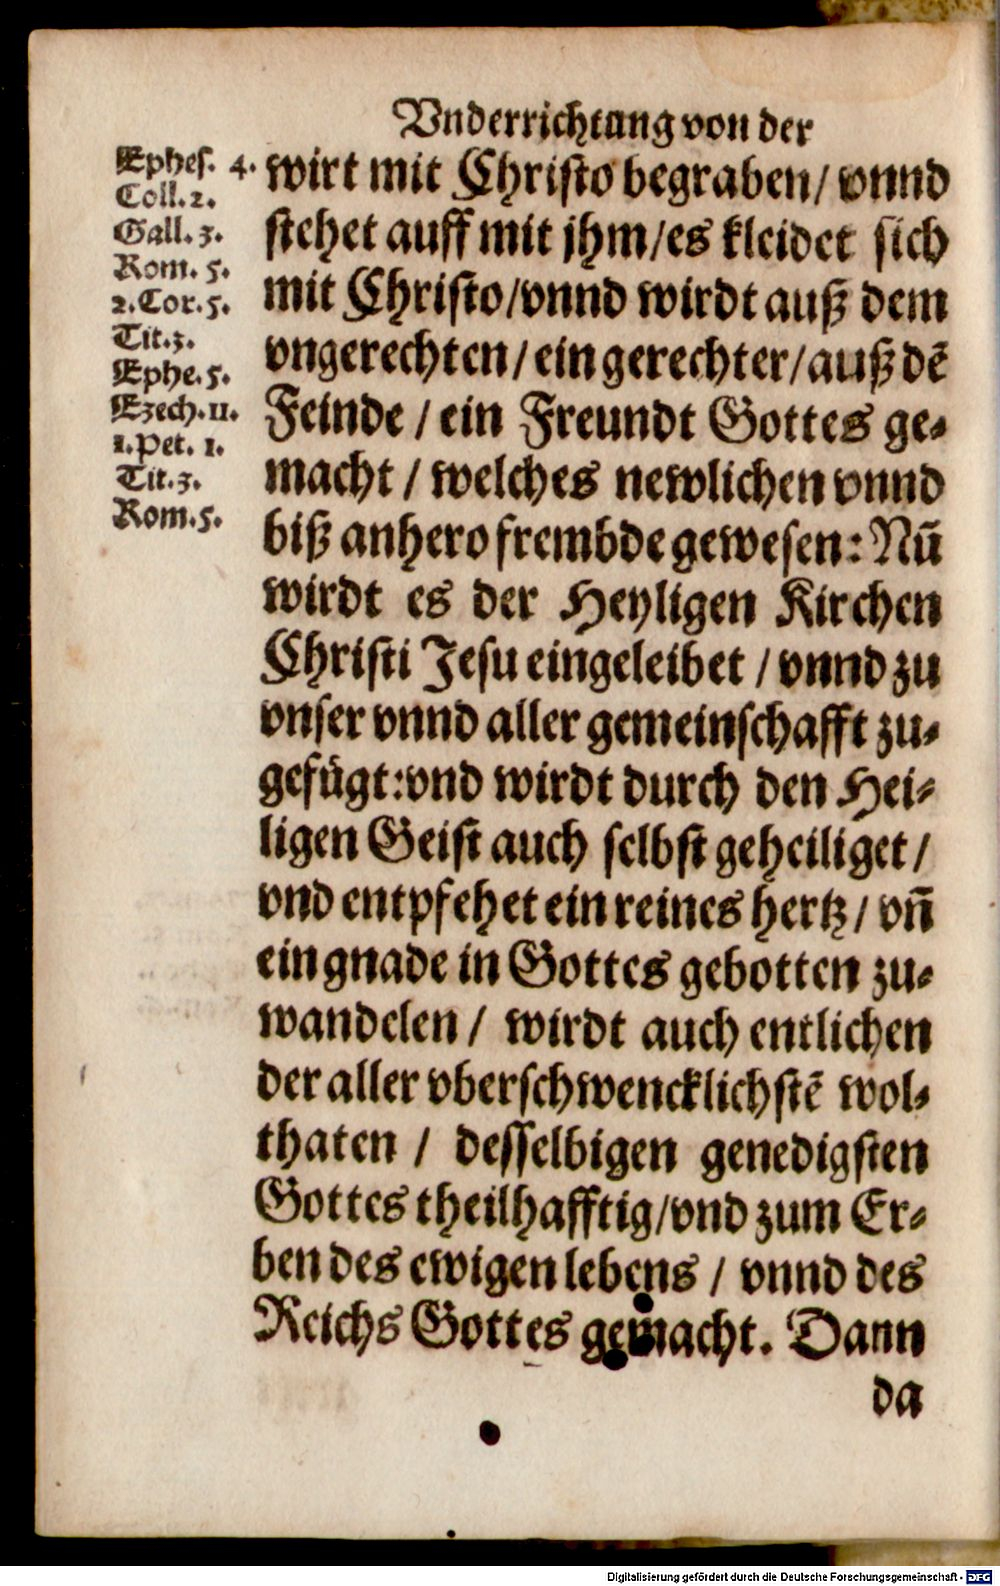 Vnderrichtung von der
Ephes. 4.
Coll. 2.
Gall. 3.
Rom. 5.
2. Cor. 5.
Tit. 3.
Ephe. 5.
Ezech. 11.
1. Pet. 1.
Tit. 3.
Rom. 5.
wirt mit Christo begraben / vnnd
stehet auff mit jhm / es kleidet sich
mit Christo / vnnd wirdt auß dem
vngerechten / ein gerechter / auß dē
Feinde / ein Freundt Gottes ge-
macht / welches newlichen vnnd
biß anhero frembde gewesen: Nū
wirdt es der Heyligen Kirchen
Christi Jesu eingeleibet / vnnd zu
vnser vnnd aller gemeinschafft zu-
gefügt: vnd wirdt durch den Hei-
ligen Geist auch selbst geheiliget /
vnd entpfehet ein reines hertz / vn̄
ein gnade in Gottes gebotten zu-
wandelen / wirdt auch entlichen
der aller vberschwencklichstē wol-
thaten / desselbigen genedigsten
Gottes theilhafftig / vnd zum Er-
ben des ewigen lebens / vnnd des
Reichs Gottes gemacht. Dann
da
Digitalisierung gefördert durch die Deutsche Forschungsgemeinschaft - DFG